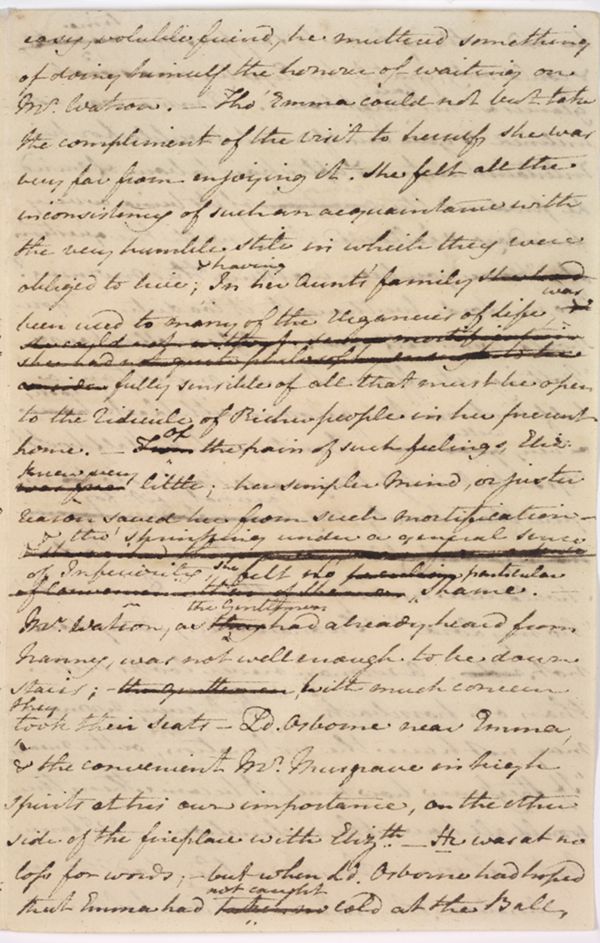 easy, voluble friend, he muttered something
of doing himself the honour of waiting on
Mr. Watson. — Tho' Emma could not but take
the compliment of the visit to herself, she was
very far from enjoying it. She felt all the
inconsistency of such an acquaintance with
the very humble stile in which they were
& having
obliged to live; In her Aunt's family she had
was
been used to many of the Elegancies of Life
fully sensible of all that must be open
to the ridicule of Richer people in her present
home. — of the pain of such feelings, Eliz:
knew very
little; her simpler Mind, or juster
reason saved her from such mortification —
& tho' shrinking under a general sense
of Inferiority, she felt no particular
shame. —
the Gentlemen
Mr. Watson, as they had already heard from
Nanny, was not well enough to be down
stairs; the gentlemen, With much concern
they
took their seats — Ld. Osborne near Emma,
& the convenient Mr. Musgrave in high
spirits at his own importance, on the other
side of the fireplace with Elizth. — He was at no
loss for words; — but when Ld. Osborne had hoped
not caught
that Emma had cold at the Ball,